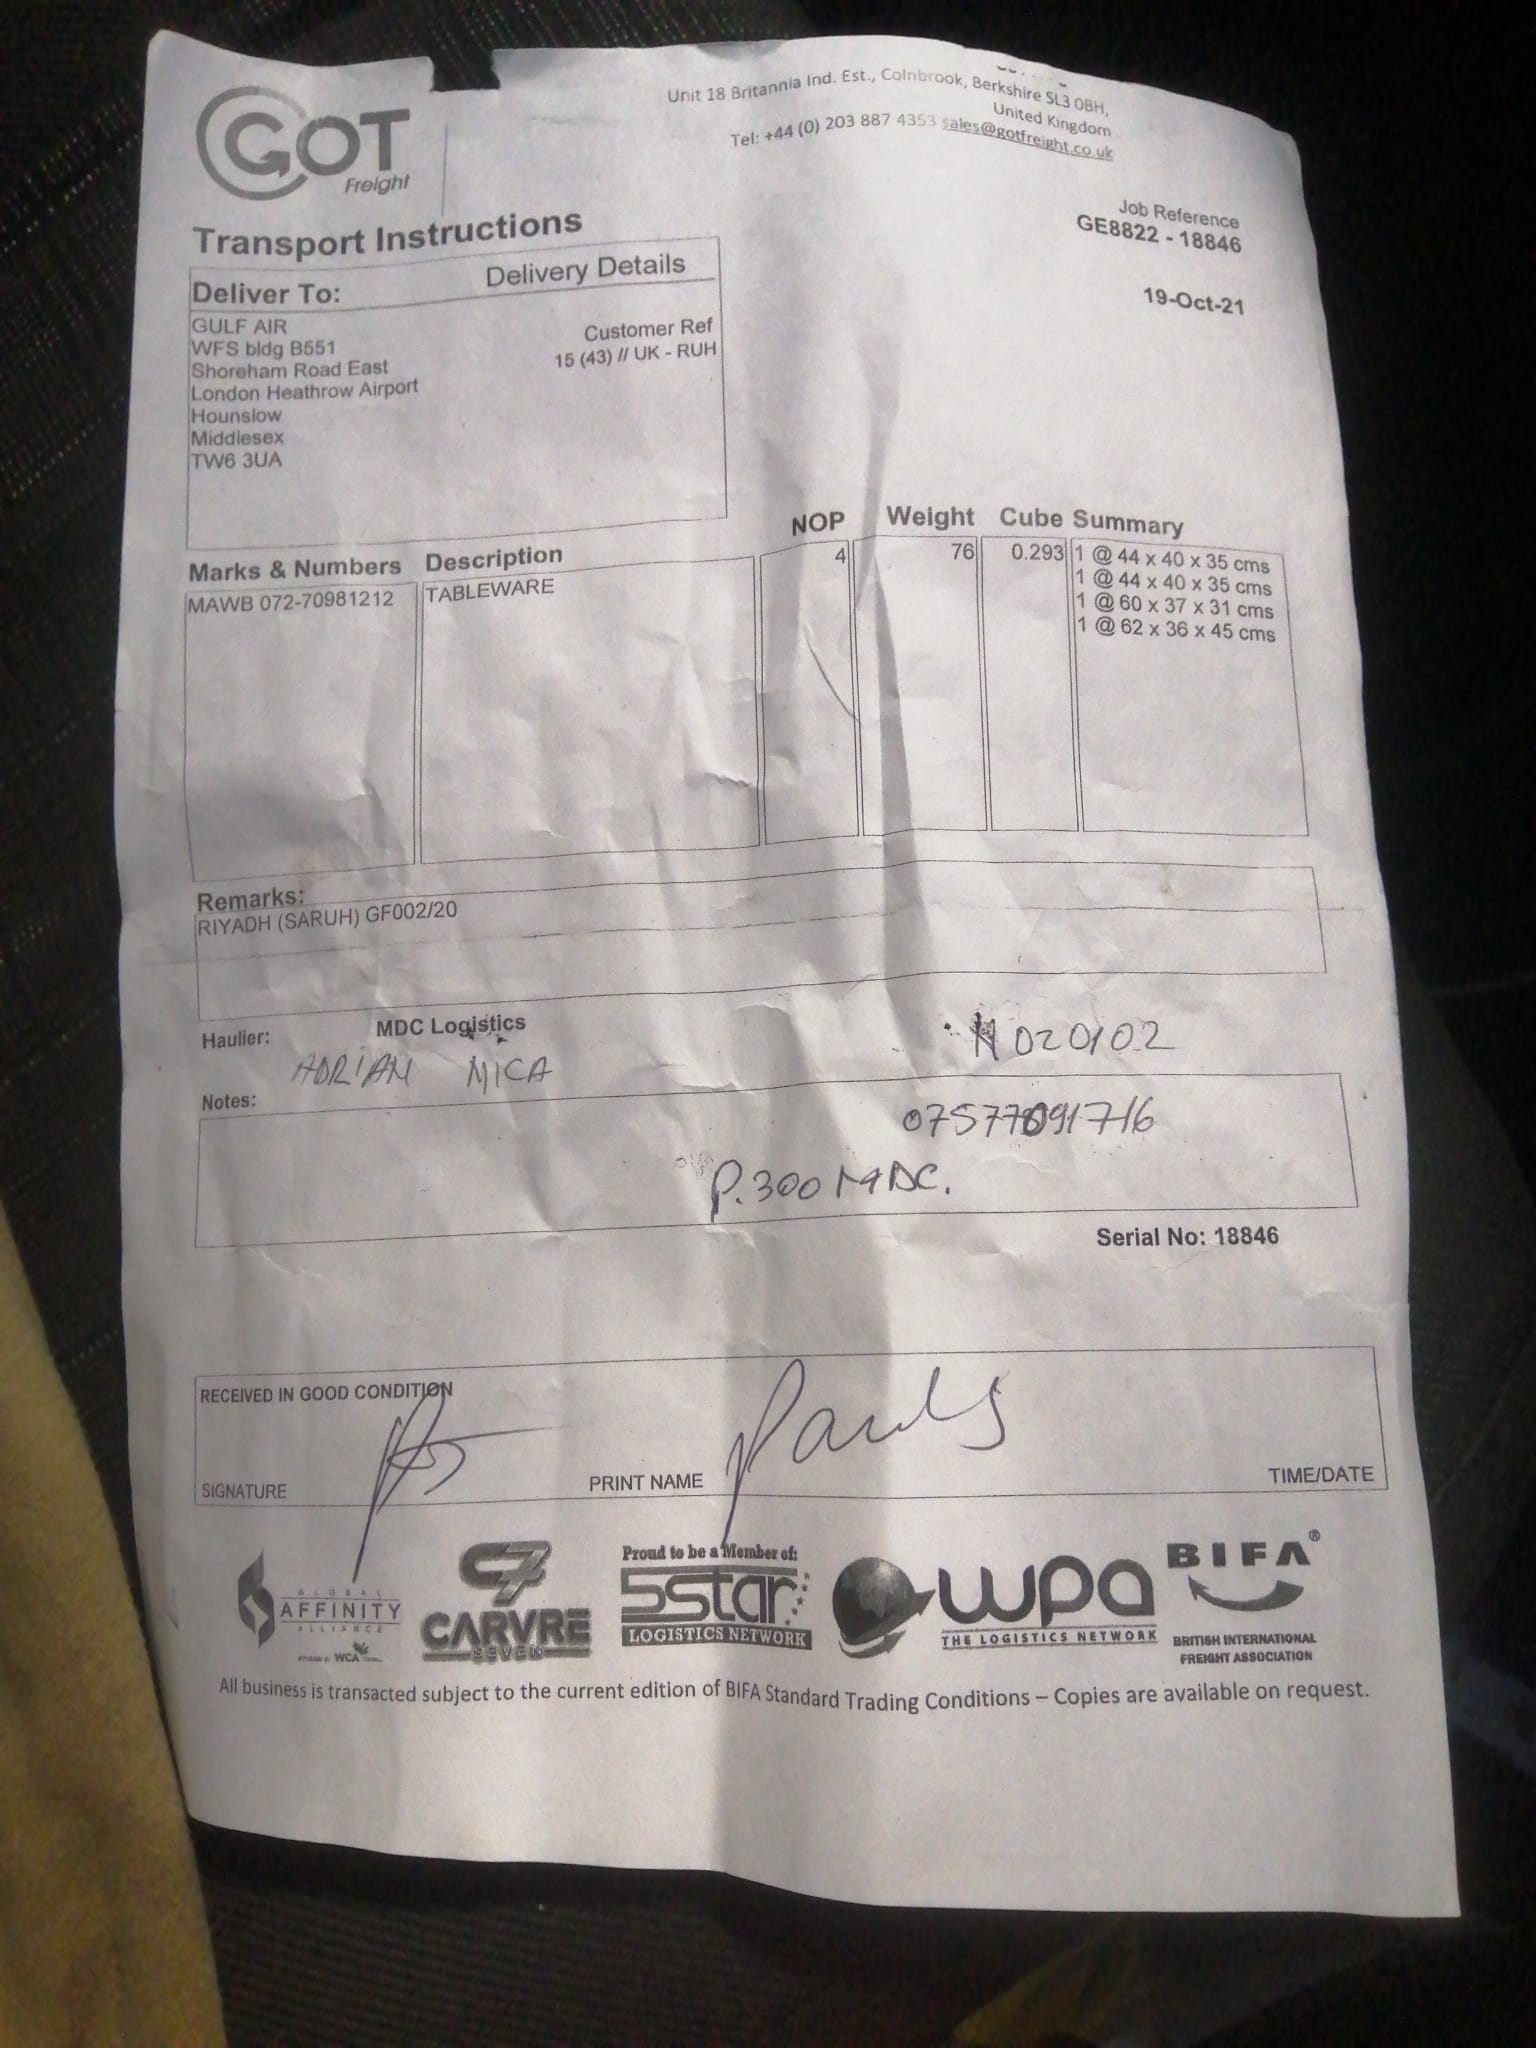 GOT
Freight
Unit 18 Britannia Ind. Est., Colnbrook, Berkshire SL3 0BH,
United Kingdom
Tel: +44 (0) 203 887 4353 sales@gotfreight.co.uk
Job Reference
GE8822 - 18846
19-Oct-21
Transport Instructions
Delivery Details
Deliver To:
GULF AIR
WFS bldg B551
Shoreham Road East
London Heathrow Airport
Hounslow
Middlesex
TW6 3UA
Customer Ref
15 (43) // UK - RUH
Marks & Numbers Description NOP Weight Cube Summary
MAWB 072-70981212 TABLEWARE 4 76 0.293 1 @ 44 x 40 x 35 cms
1 @ 44 x 40 x 35 cms
1 @ 60 x 37 x 31 cms
1 @ 62 x 36 x 45 cms
Remarks:
RIYADH (SARUH) GF002/20
Haulier: MDC Logistics
ADRIAN MICA
020102
Notes:
07577091716
P.300 MDC.
Serial No: 18846
RECEIVED IN GOOD CONDITION
SIGNATURE
PRINT NAME
TIME/DATE
GLOBAL
AFFINITY
ALLIANCE
WCA
C7
CARVRE
SEVEN
Proud to be a Member of:
5star
LOGISTICS NETWORK
wpa
THE LOGISTICS NETWORK
BIFA®
BRITISH INTERNATIONAL
FREIGHT ASSOCIATION
All business is transacted subject to the current edition of BIFA Standard Trading Conditions – Copies are available on request.